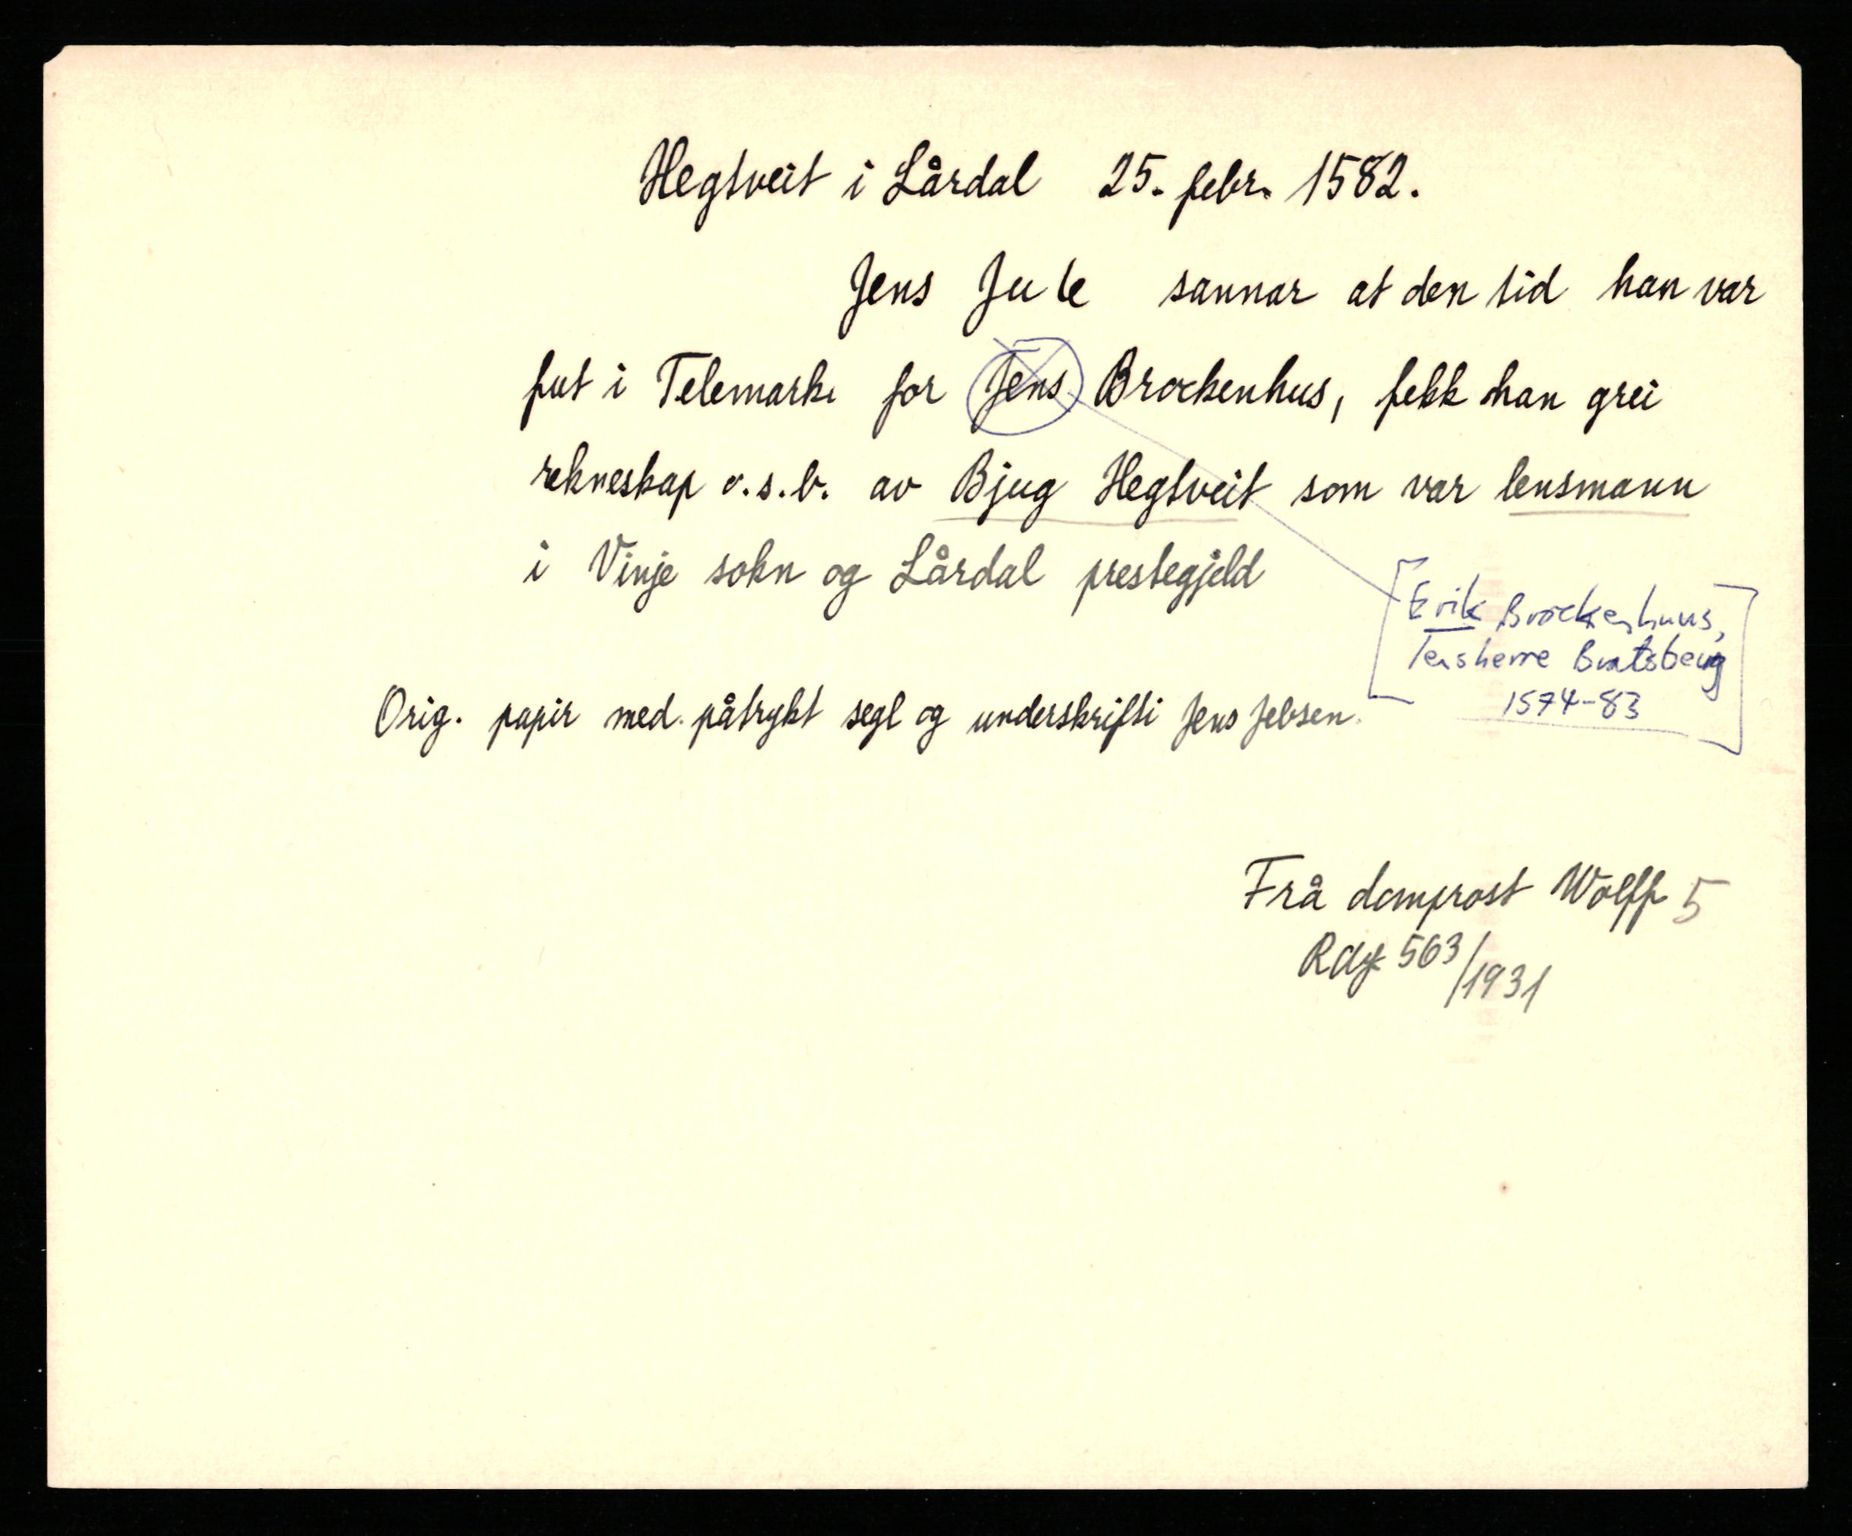 Hegtveit i Lårdal 25. febr. 1582.
Jens Jute sannar at den tid han var
fut i Telemark. for Jens Brockenhus, fekk han grei
rekneskap o.s.b. av Bjug Hegtveit som var lensmann
i Vinje sokn og Lårdal prestegjeld
[Erik Brockenhuus,
lensherre Bratsberg
1574-83]
Orig. papir med påtrykt segl og underskrifti Jens Jebsen.
Frå domprost Wolff 5
563/1931